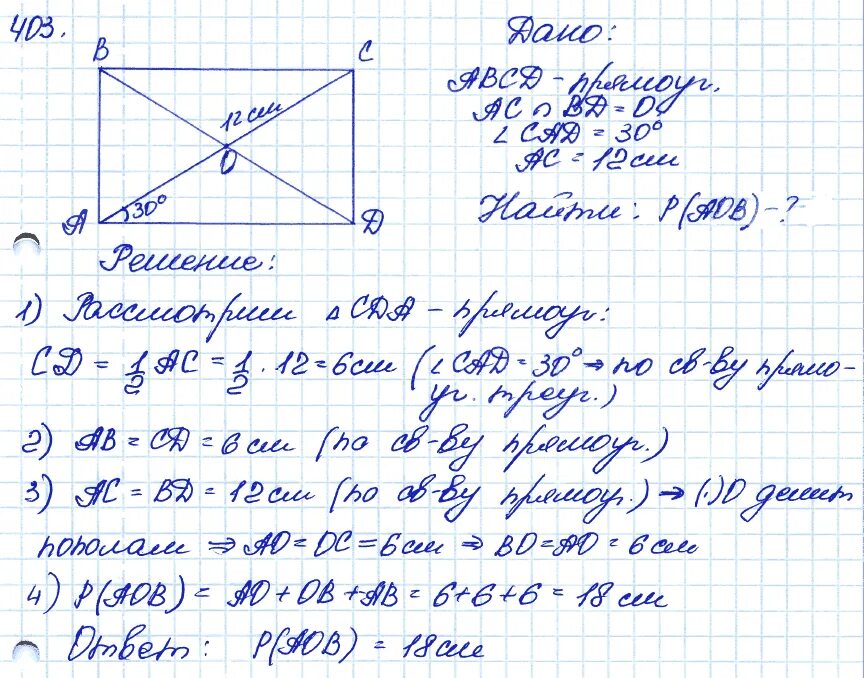 403.
B
C
12 см
O
30°
A
D
Дано:
ABCD - прямоуг.
AC ∩ BD = O
∠CAD = 30°
AC = 12 см
Найти: P(AOB) - ?
Решение:
1) Рассмотрим △CDA - прямоуг:
CD = 1/2 AC = 1/2 · 12 = 6 см (∠CAD = 30° ⇒ по св-ву прямо-
уг. треуг.)
2) AB = CD = 6 см (по св-ву прямоуг.)
3) AC = BD = 12 см (по св-ву прямоуг.) ⇒ (·)O делит
пополам ⇒ AO = OC = 6 см ⇒ BO = AO = 6 см
4) P(AOB) = AO + OB + AB = 6 + 6 + 6 = 18 см
Ответ: P(AOB) = 18 см